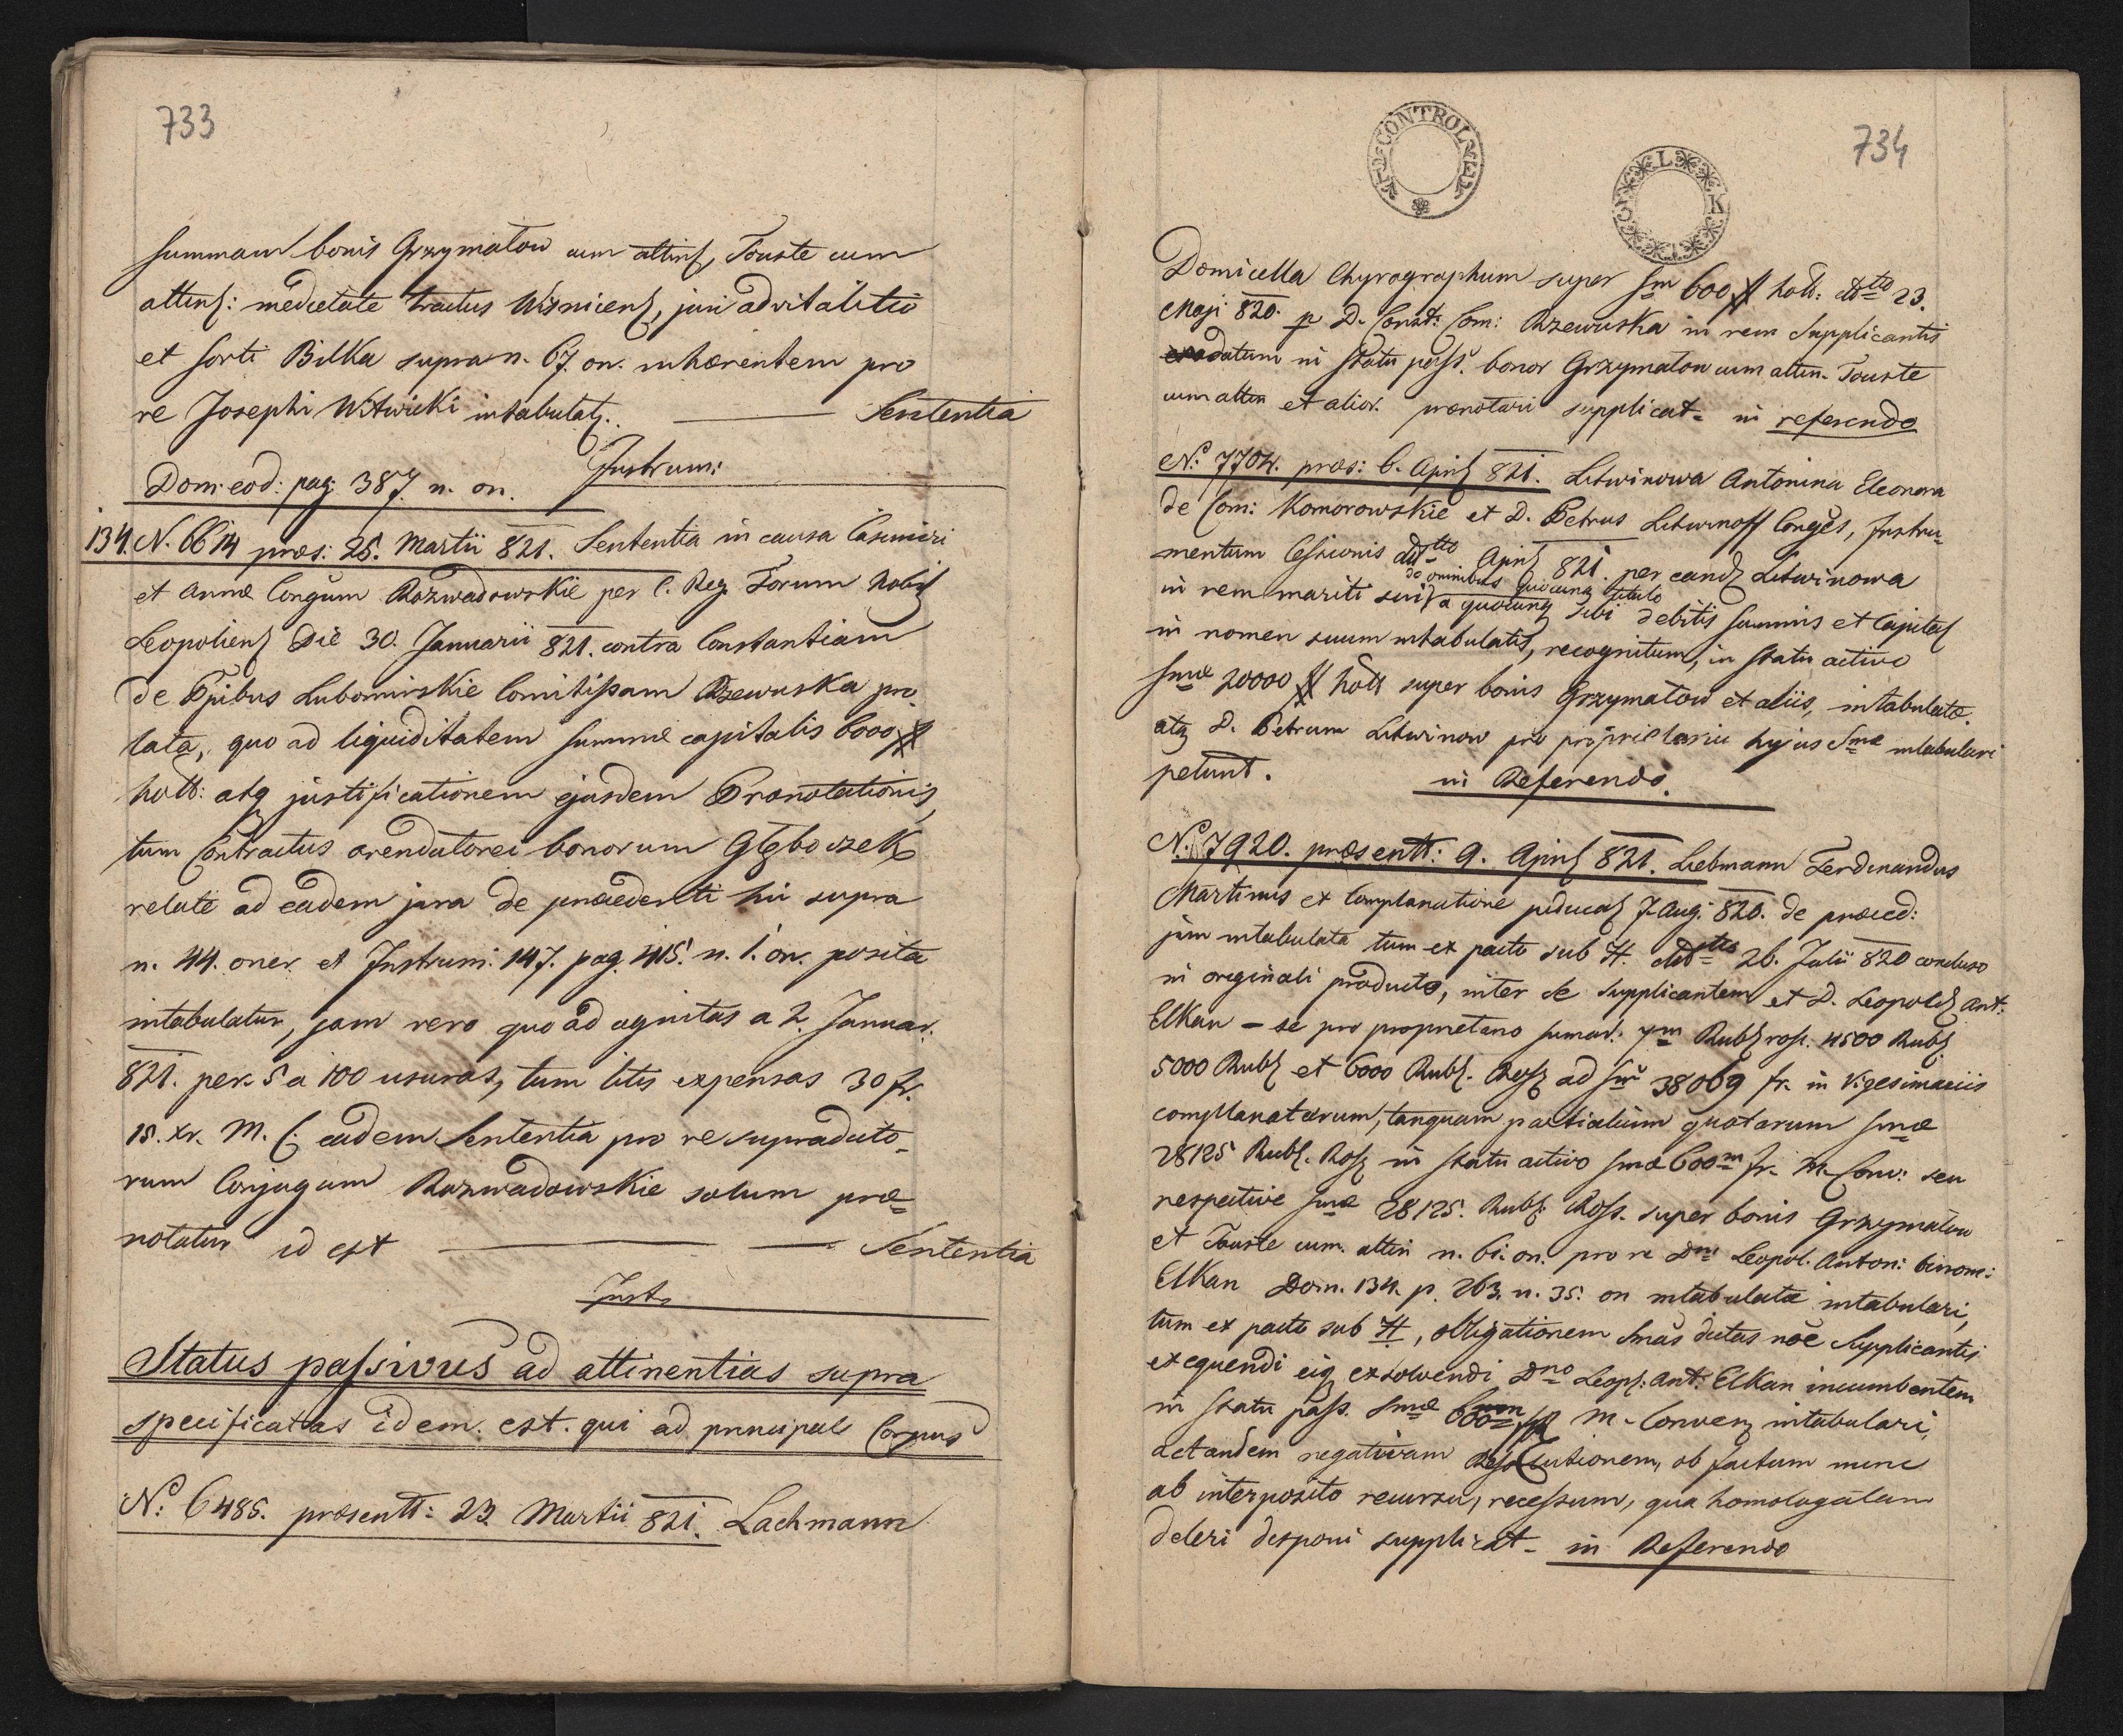 733
summam bonis Grzymałow cum attinȝ, Touste cum
attinȝ: medietate tractus Uśnicenȝ, juri advitalitio
et sorti Bilka supra n. 67. on. inhærentem pro
re Josephi Witwicki intabulatȝ. — Sententia
Dom. eod: pag. 387. n. on. Instrum:
134. N. 6614 præs: 26. Martii 821. Sententia in causa Casimiri
et Annæ Conȷgum Rozwadowskie per C. Reg. Forum Nobil
Leopoliens die 30. Januarii 821. contra Constantiam
de Ppibus Lubomirskie Comitissam Rzewuska pro-
lata, quo ad liquiditatem summæ capitalis 6000 #
holl: atq justificationem ejusdem Prænotationis,
tum Contractus arendatorei bonorum Głęboczek
relate ad eadem jura de præcedenti hic supra
n. 44. oner. et Instrum: 147. pag. 415. n. 1. on. posita
intabulatur, jam vero quo ad agnitas a 2. Januar.
821. per 5 a 100 usuras, tum litis expensas 30 fr.
15. xr. M. C. eadem Sententia pro re supradicto-
rum Conjugum Rozwadowskie solum præ-
notatur id est — Sententia
Inst.
Status passivus ad attinentias supra
specificatas idem. est. qui ad principale Corpus
N: 6485. præsentt: 23. Martii 821. Lachmann
CONTROL
734
L K
Domicella Chyrographum super Sm 600 # holl: ddtto 23.
Maji 820. p D. Const: Com: Rzewuska in rem Supplicantis
datum in statu pass. bonor Grzymałow cum attin. Touste
cum attin et alior. prænotari supplicat- in referendo
N: 7704. præs: 6. April 821. Litwinowa Antonina Eleonora
de Com: Komorowskie et D. Petrus Litwinoff Conges, Instru-
mentum Cessionis ddtto April 821. per eand Litwinowa
de omnibus quocunq titulo
in rem mariti sui a quocunq sibi debitis summis et Capital
in nomen suum intabulatis, recognitum, in statu activo
Smæ 20000 # holl super bonis Grzymałow et aliis, intabulatæ.
atq D. Petrum Litwinow pro proprietario hujus Smæ intabulari
petunt. in Referendo.
N. 7920. præsentt: 9. April 821. Liebmann Ferdinandus
Martinus ex Complanatione 7. Aug: 820. de præced:
jam intabulata tum ex pacto sub H. ddtto 26. Julii 820 concluso
in originali producto, inter se Supplicantem et D. Leopold Ant:
Elkan - se pro proprietario sumar: 7m Rubl ross. 4500 Rubl
5000 Rubl et 6000 Rubl. Ross ad Sm 38069 fr. in Vigesimariis
complanatarum, tanquam partialium quotarum smæ
28125 Rubl. Ross in statu activo smæ 600m fr. M. Conv: seu
respective smæ 28125. Rubl: Ross. super bonis Grzymałow
et Touste cum. attin n. 61. on. pro re Dni Leopol. Anton: binom:
Elkan Dom. 134. p. 263. n. 35. on intabulatæ intabulari,
tum ex pacto sub H, obligationem Smas dictas nõe Supplicantis
exequendi eiq exsolvendi Dno Leop: Ant: Elkan incumbentem
in statu pass. Smæ 600m fr M. Convenȝ intabulari,
ac tandem negativam Resolutionem, ob factum nunc
ab interposito recursu, recessum, qua homologatam
deleri disponi supplicat- in Referendo